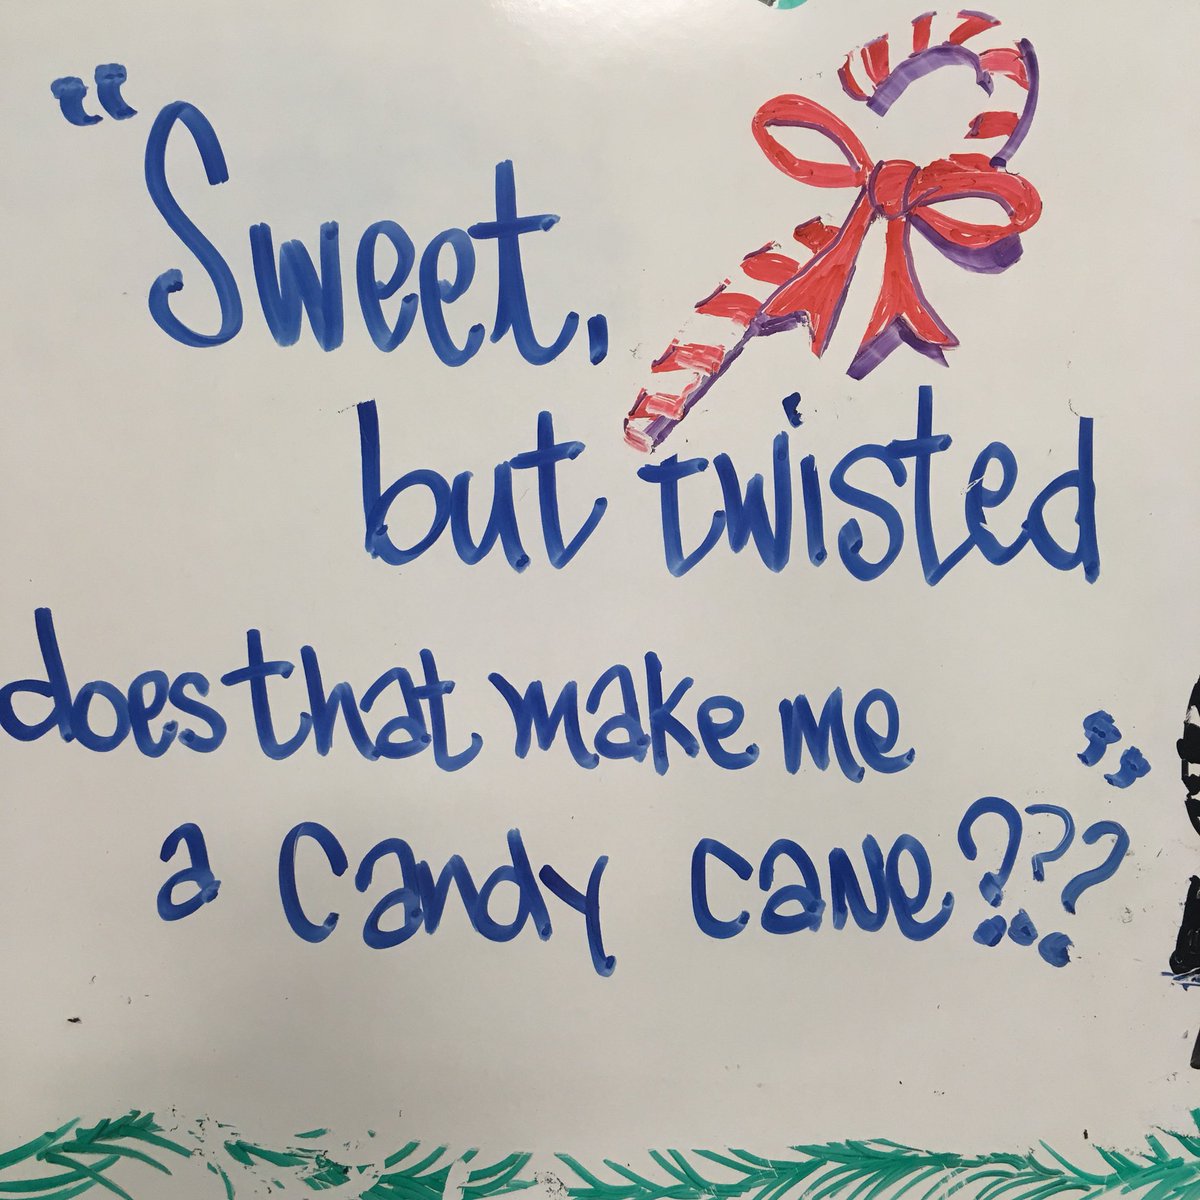 "Sweet,
but twisted
does that make me
a candy cane???"